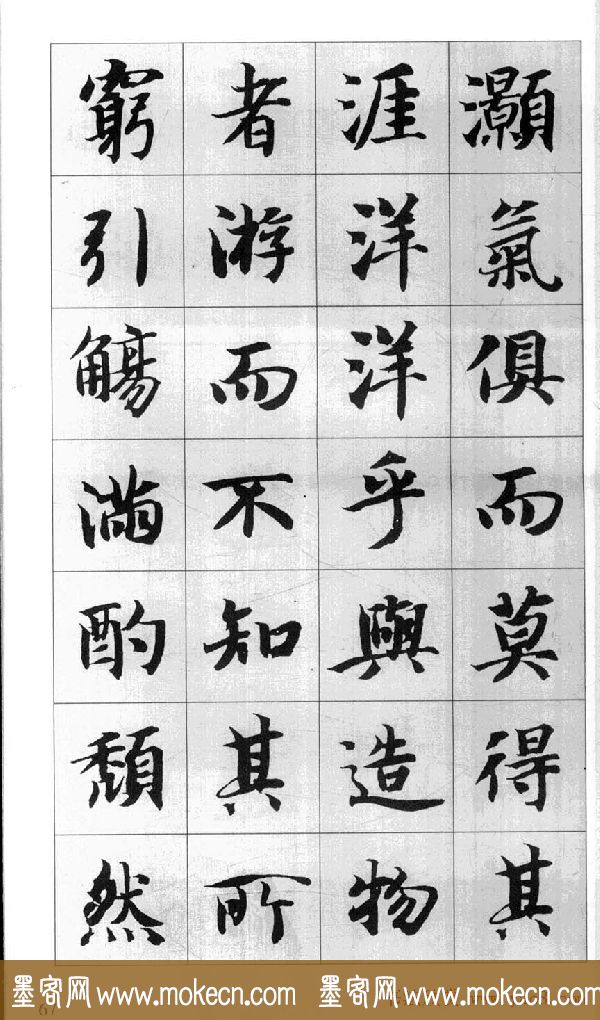 灝氣俱而莫得其
涯洋洋乎與造物
者游而不知其所
窮引觴滿酌頹然
墨客网 www.mokecn.com 墨客网 www.mokecn.com
67